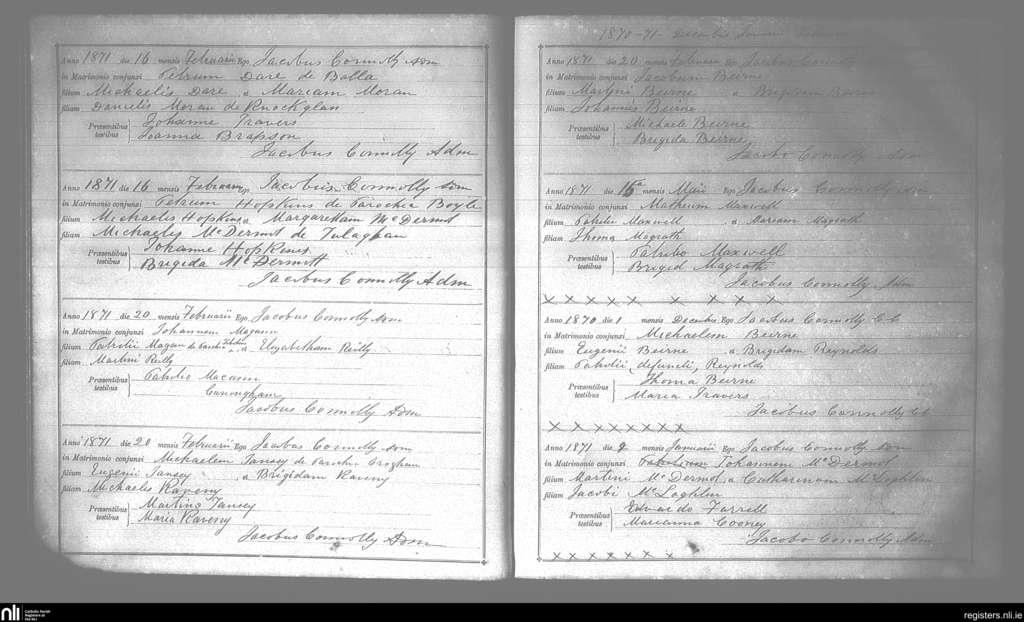 Anno 1871 die 16 mensis Februarii Ego Jacobus Connolly Adm
in Matrimonio conjunxi Petrum Dare de Bolla
filium Michaelis Dare, a Mariam Moran
filiam Danielis Moran de Knockglan
Præsentibus testibus Johanne Travers
Joanna Brapson
Jacobus Connolly Adm
Anno 1871 die 16 mensis Februarii Ego Jacobus Connolly Adm
in Matrimonio conjunxi Petrum Hopkins de Parochia Boyle
filium Michaelis Hopkins a Margaretam McDermot
filiam Michaelis McDermot de Tulaghan
Præsentibus testibus Johanne Hopkins
Brigida McDermott
Jacobus Connolly Adm
Anno 1871 die 20 mensis Februarii Ego Jacobus Connolly Adm
in Matrimonio conjunxi Johannem Magann
filium Patritii Magan de a Elizabetham Reilly
filiam Martini Reilly
Præsentibus testibus Patritio Macann
Jacobus Connolly Adm
Anno 1871 die 20 mensis Februarii Ego Jacobus Connolly Adm
in Matrimonio conjunxi Michaelem Tansey de Croghan
filium Eugenii Tansey, a Brigidam
filiam Michaelis Raveny
Præsentibus testibus Martino Tansey
Maria Raveny
Jacobus Connolly Adm
1870-71 Decembris
Anno 1871 die 20 mensis Februarii Ego Jacobus Connolly
in Matrimonio conjunxi Jacobum Beirne
filium Martini Beirne a Brigidam Beirne
filiam Johannis Beirne
Præsentibus testibus Michaele Beirne
Brigida Beirne
Jacobo Connolly Adm
Anno 1871 die 15a mensis Maii Ego Jacobus Connolly Adm
in Matrimonio conjunxi Matheum Maxwell
filium Patritii Maxwell a Mariam Magrath
filiam Thoma Magrath
Præsentibus testibus Patritio Maxwell
Brigid Magrath
Jacobus Connolly Adm
x x x x x x x x x x
Anno 1870 die 1 mensis Decembris Ego Jacobus Connolly C.C.
in Matrimonio conjunxi Michaelem Beirne
filium Eugenii Beirne a Brigidam Reynolds
filiam Patritii, defuncti, Reynolds
Præsentibus testibus Thoma Beirne
Maria Travers
Jacobus Connolly CC
x x x x x x x x
Anno 1871 die 9 mensis Januarii Ego Jacobus Connolly Adm
in Matrimonio conjunxi Johannem McDermot
filium Martini McDermot, a Catharinam McLoghlin
filiam Jacobi McLoghlin
Præsentibus testibus Edvardo Farrell
Marianna Cooney
Jacobo Connolly Adm
x x x x x x x x
nli
Catholic Parish
Registers at
the NLI
registers.nli.ie